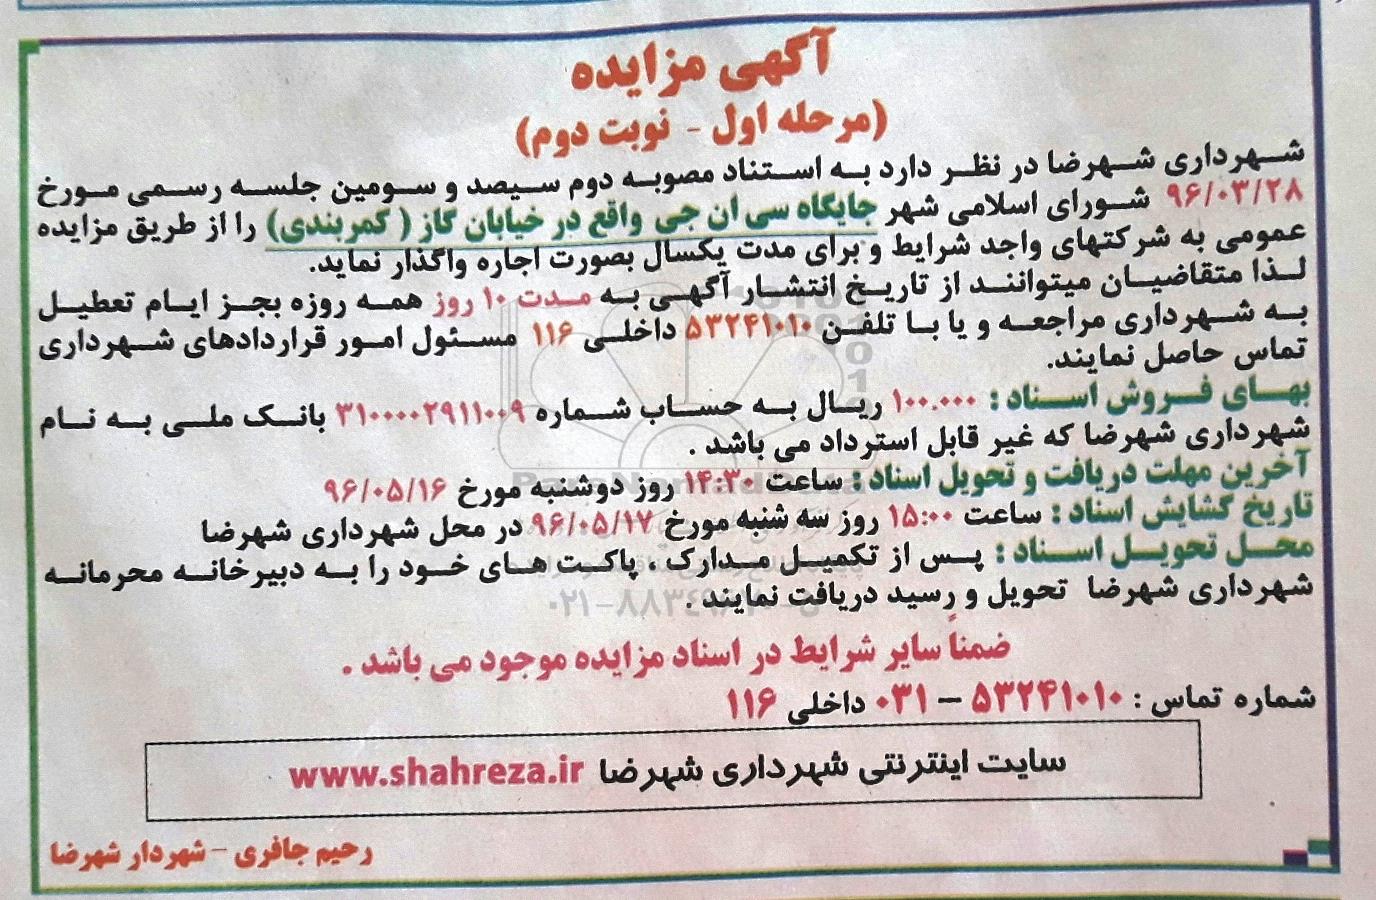 آگهی مزایده
(مرحله اول - نوبت دوم)
شهرداری شهرضا در نظر دارد به استناد مصوبه دوم سیصد و سومین جلسه رسمی مورخ
۹۶/۰۳/۲۸ شورای اسلامی شهر جایگاه سی ان جی واقع در خیابان گاز ( کمربندی) را از طریق مزایده
عمومی به شرکتهای واجد شرایط و برای مدت یکسال بصورت اجاره واگذار نماید.
لذا متقاضیان میتوانند از تاریخ انتشار آگهی به مدت ۱۰ روز همه روزه بجز ایام تعطیل
به شهرداری مراجعه و یا با تلفن ۵۳۲۴۱۰۱۰ داخلی ۱۱۶ مسئول امور قراردادهای شهرداری
تماس حاصل نمایند.
بهای فروش اسناد : ۱۰۰.۰۰۰ ریال به حساب شماره ۳۱۰۰۰۰۲۹۱۱۰۰۹ بانک ملی به نام
شهرداری شهرضا که غیر قابل استرداد می باشد .
آخرین مهلت دریافت و تحویل اسناد : ساعت ۱۴:۳۰ روز دوشنبه مورخ ۹۶/۰۵/۱۶
تاریخ گشایش اسناد : ساعت ۱۵:۰۰ روز سه شنبه مورخ ۹۶/۰۵/۱۷ در محل شهرداری شهرضا
محل تحویل اسناد : پس از تکمیل مدارک ، پاکت های خود را به دبیرخانه محرمانه
شهرداری شهرضا تحویل و رسید دریافت نمایند .
ضمناً سایر شرایط در اسناد مزایده موجود می باشد .
شماره تماس : ۵۳۲۴۱۰۱۰ – ۰۳۱ داخلی ۱۱۶
سایت اینترنتی شهرداری شهرضا www.shahreza.ir
رحیم جافری - شهردار شهرضا